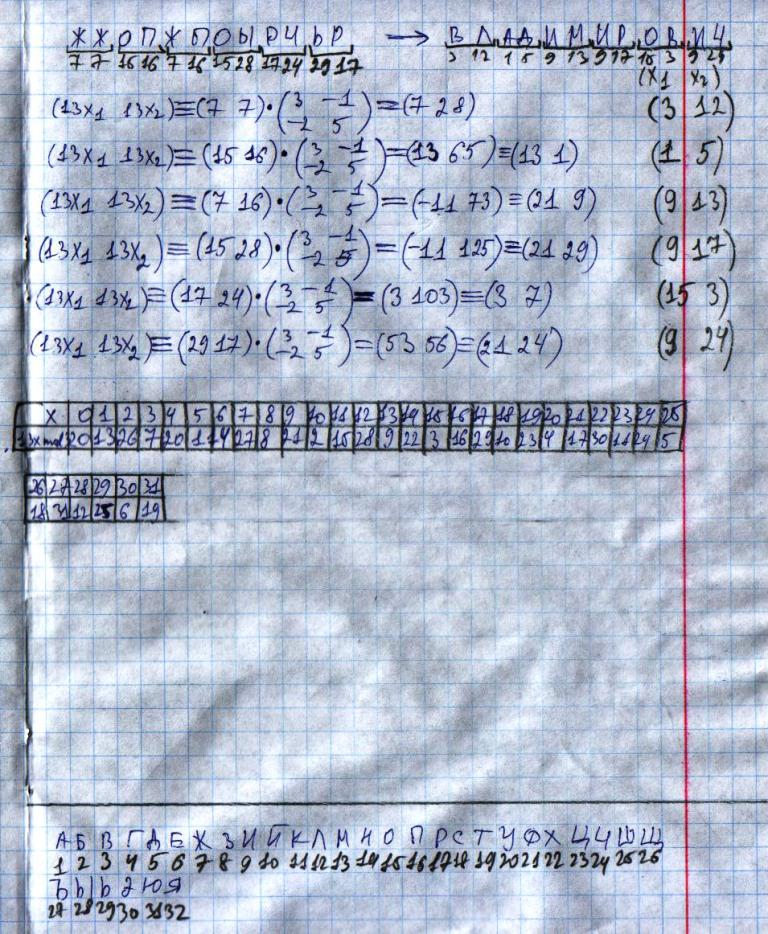 Ж Ж О П Ж П О Ы Р Ч Ь Р → В Л А Д И М И Р О В И Ч
7 7 16 16 7 16 15 28 17 24 29 17 3 12 1 5 9 13 9 17 15 3 9 24
(x1 x2)
(13x1 13x2)≡(7 7)·(3 -1 -2 5)=(7 28) (3 12)
(13x1 13x2)≡(15 16)·(3 -1 -2 5)=(13 65)≡(13 1) (1 5)
(13x1 13x2)≡(7 16)·(3 -1 -2 5)=(-11 73)≡(21 9) (9 13)
(13x1 13x2)≡(15 28)·(3 -1 -2 5)=(-11 125)≡(21 29) (9 17)
(13x1 13x2)≡(17 24)·(3 -1 -2 5)=(3 103)≡(3 7) (15 3)
(13x1 13x2)≡(29 17)·(3 -1 -2 5)=(53 56)≡(21 24) (9 24)
x 0 1 2 3 4 5 6 7 8 9 10 11 12 13 14 15 16 17 18 19 20 21 22 23 24 25
13x mod 0 13 26 7 20 1 14 27 8 21 2 15 28 9 22 3 16 29 10 23 4 17 30 11 24 5
26 27 28 29 30 31
18 31 12 25 6 19
А Б В Г Д Е Ж З И Й К Л М Н О П Р С Т У Ф Х Ц Ч Ш Щ
1 2 3 4 5 6 7 8 9 10 11 12 13 14 15 16 17 18 19 20 21 22 23 24 25 26
Ъ Ы Ь Э Ю Я
27 28 29 30 31 32